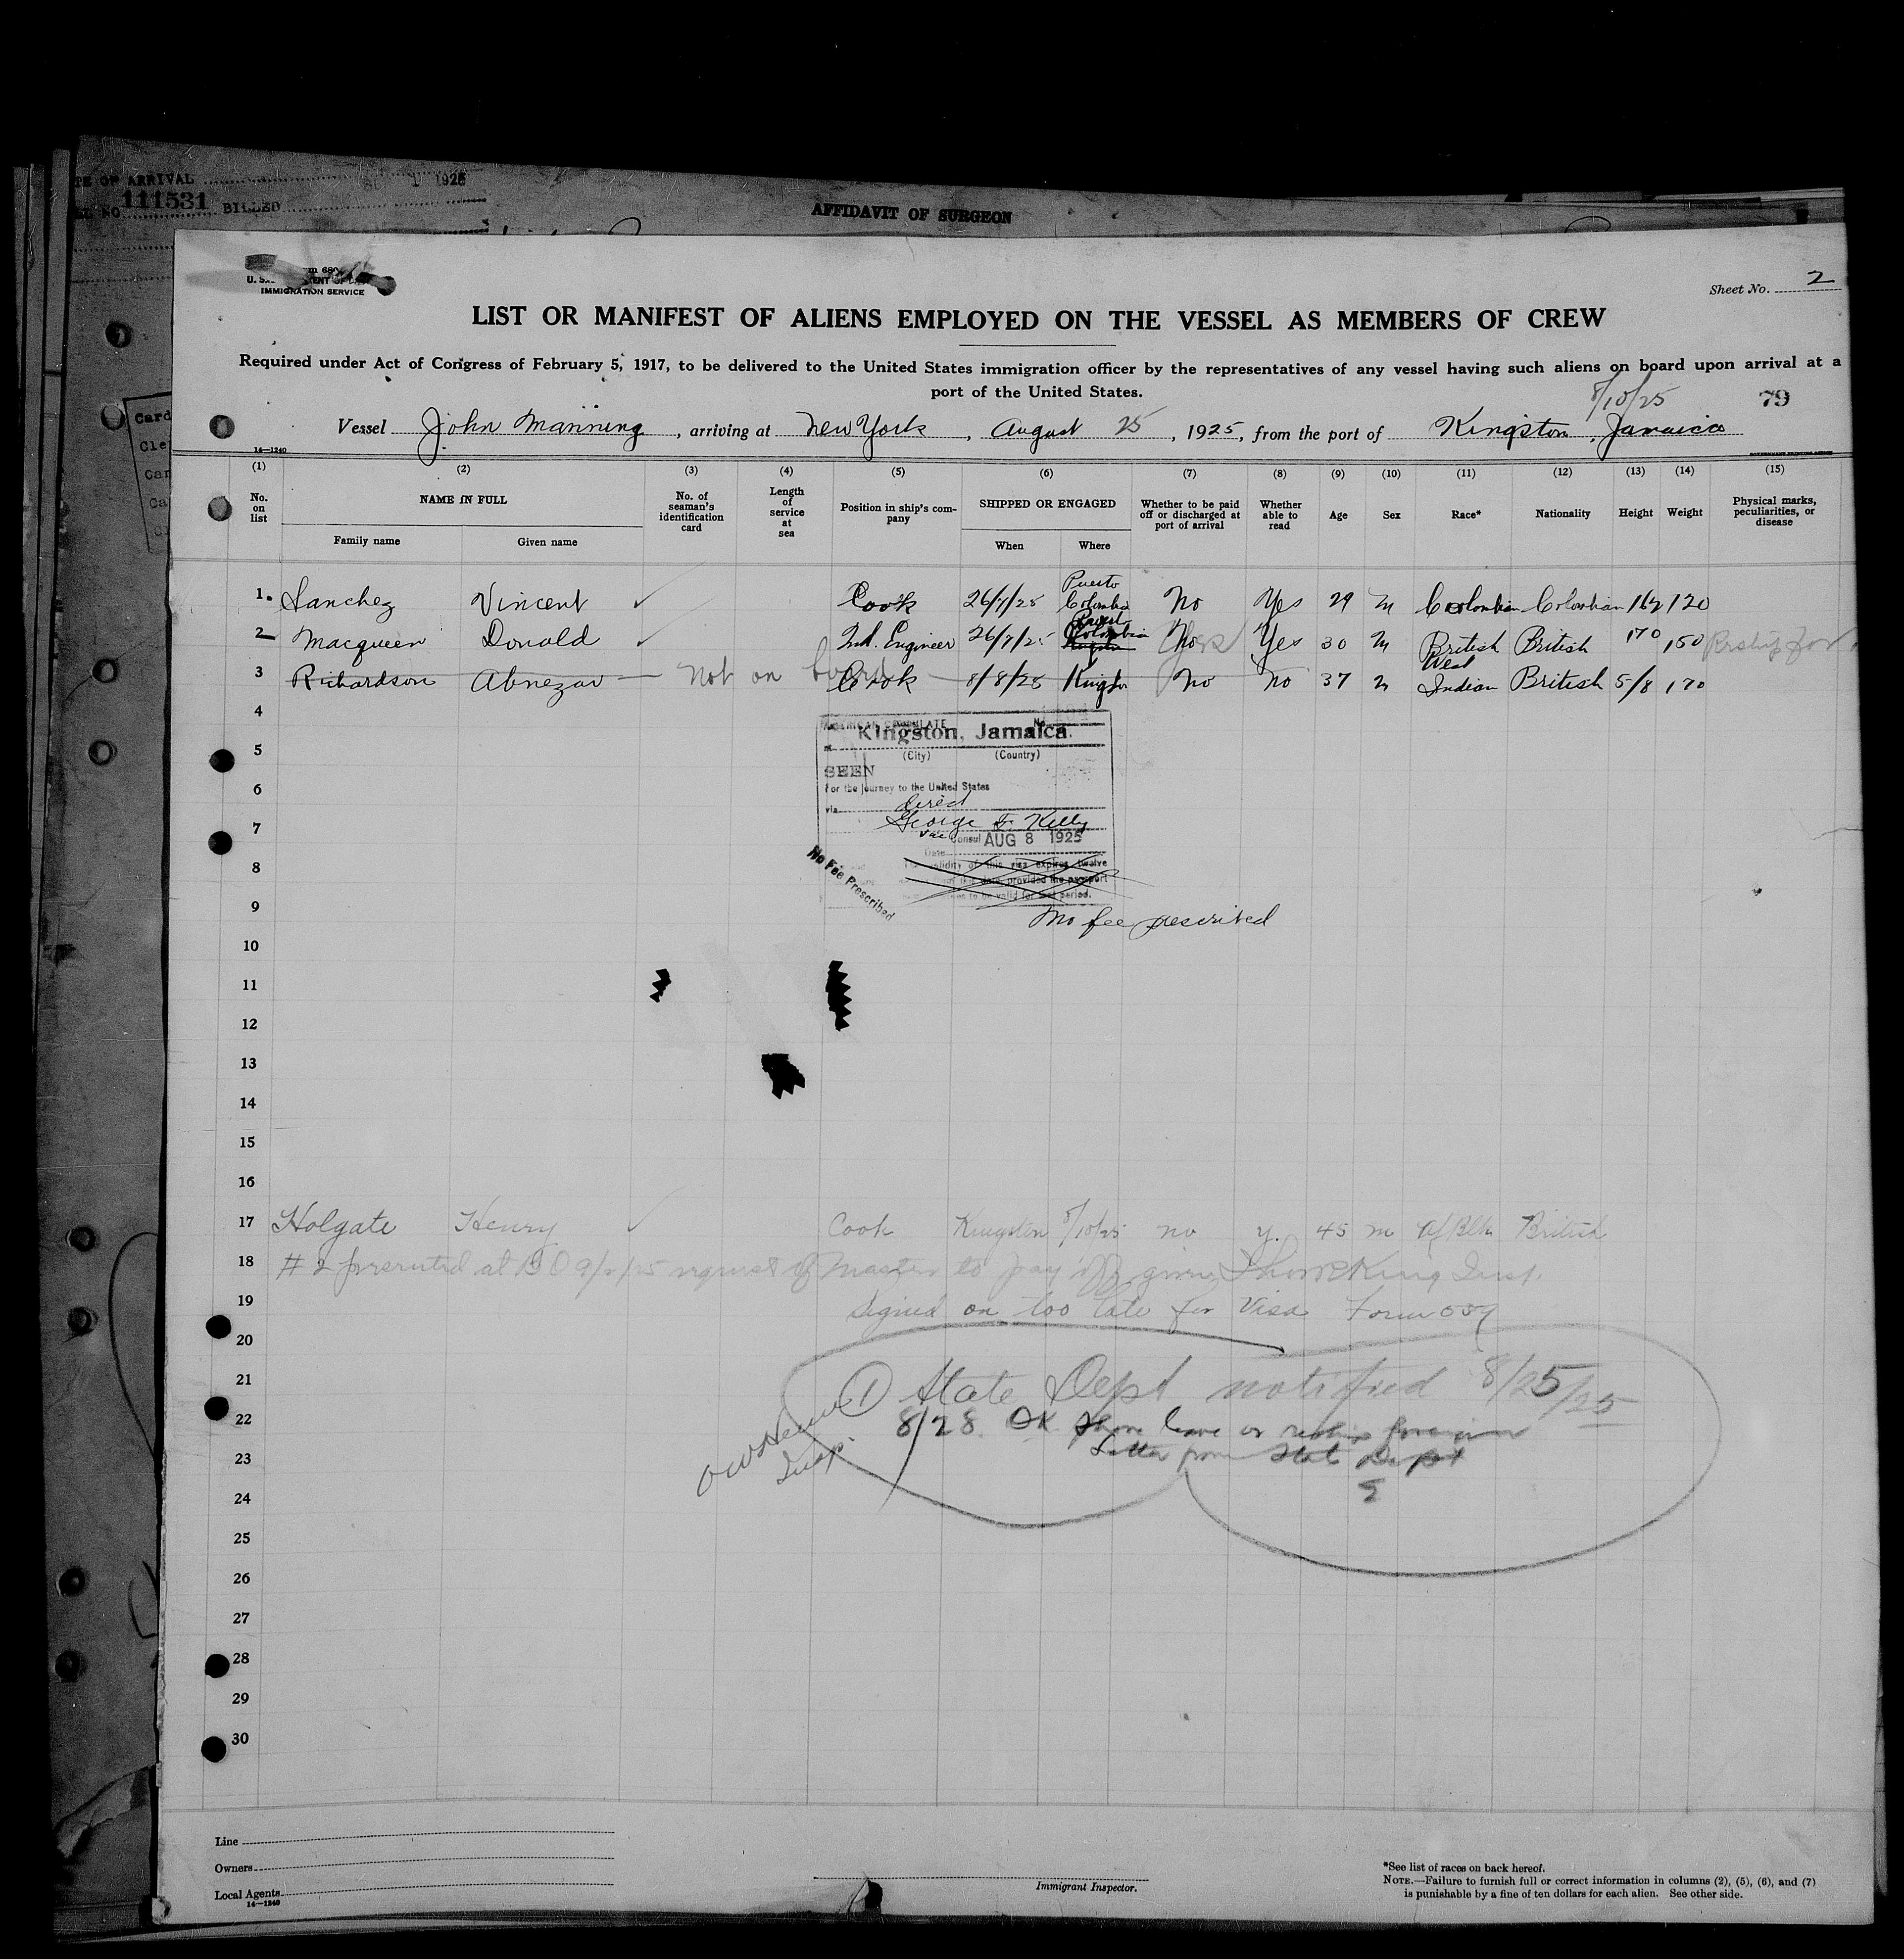 OF ARRIVAL 1 1925
NO 111531 BILLED
AFFIDAVIT OF SURGEON
IMMIGRATION SERVICE
Sheet No. 2
LIST OR MANIFEST OF ALIENS EMPLOYED ON THE VESSEL AS MEMBERS OF CREW
Required under Act of Congress of February 5, 1917, to be delivered to the United States immigration officer by the representatives of any vessel having such aliens on board upon arrival at a
port of the United States.
8/10/25 79
Vessel John Manning, arriving at New York, August 25, 1925, from the port of Kingston, Jamaica
14—1240
(1) (2) (3) (4) (5) (6) (7) (8) (9) (10) (11) (12) (13) (14) (15)
No. on list NAME IN FULL No. of seaman's identification card Length of service at sea Position in ship's company SHIPPED OR ENGAGED Whether to be paid off or discharged at port of arrival Whether able to read Age Sex Race* Nationality Height Weight Physical marks, peculiarities, or disease
Family name Given name When Where
1. Sanchez Vincent ✓ Cook 26/7/25 Puerto Colombia No Yes 29 M Colombian Colombian 162 120
2 Macqueen Donald ✓ 2nd. Engineer 26/7/25 Puerto Colombia Kingston No Yes Yes 30 M British British 170 150
3 Richardson Abnezar Not on board Cook 8/8/25 Kingston No No 37 M West Indian British 5/8 170
4
AMERICAN CONSULATE No.
Kingston, Jamaica.
5
(City) (Country)
SEEN
6
For the journey to the United States
via direct
George F. Kelly
7
Vice Consul AUG 8 1925
Date
8
validity of this visa expires twelve
date provided the passport
to be valid for that period.
No Fee Prescribed
9
No fee prescribed
10
11
12
13
14
15
16
17 Holgate Henry ✓ Cook Kingston 8/10/25 no y. 45 m Af Blk British
18 # 2 presented at B O 9/2/25 request of Master to pay off given King Insp.
19 Signed on too late for Visa Form
20
21 ① State Dept notified 8/25/25
22 8/28 OK Shore leave or reship foreign
23 Letter from State Dept
Insp.
24
25
26
27
28
29
30
Line
Owners
Local Agents
14—1240
Immigrant Inspector.
*See list of races on back hereof.
NOTE.—Failure to furnish full or correct information in columns (2), (5), (6), and (7)
is punishable by a fine of ten dollars for each alien. See other side.